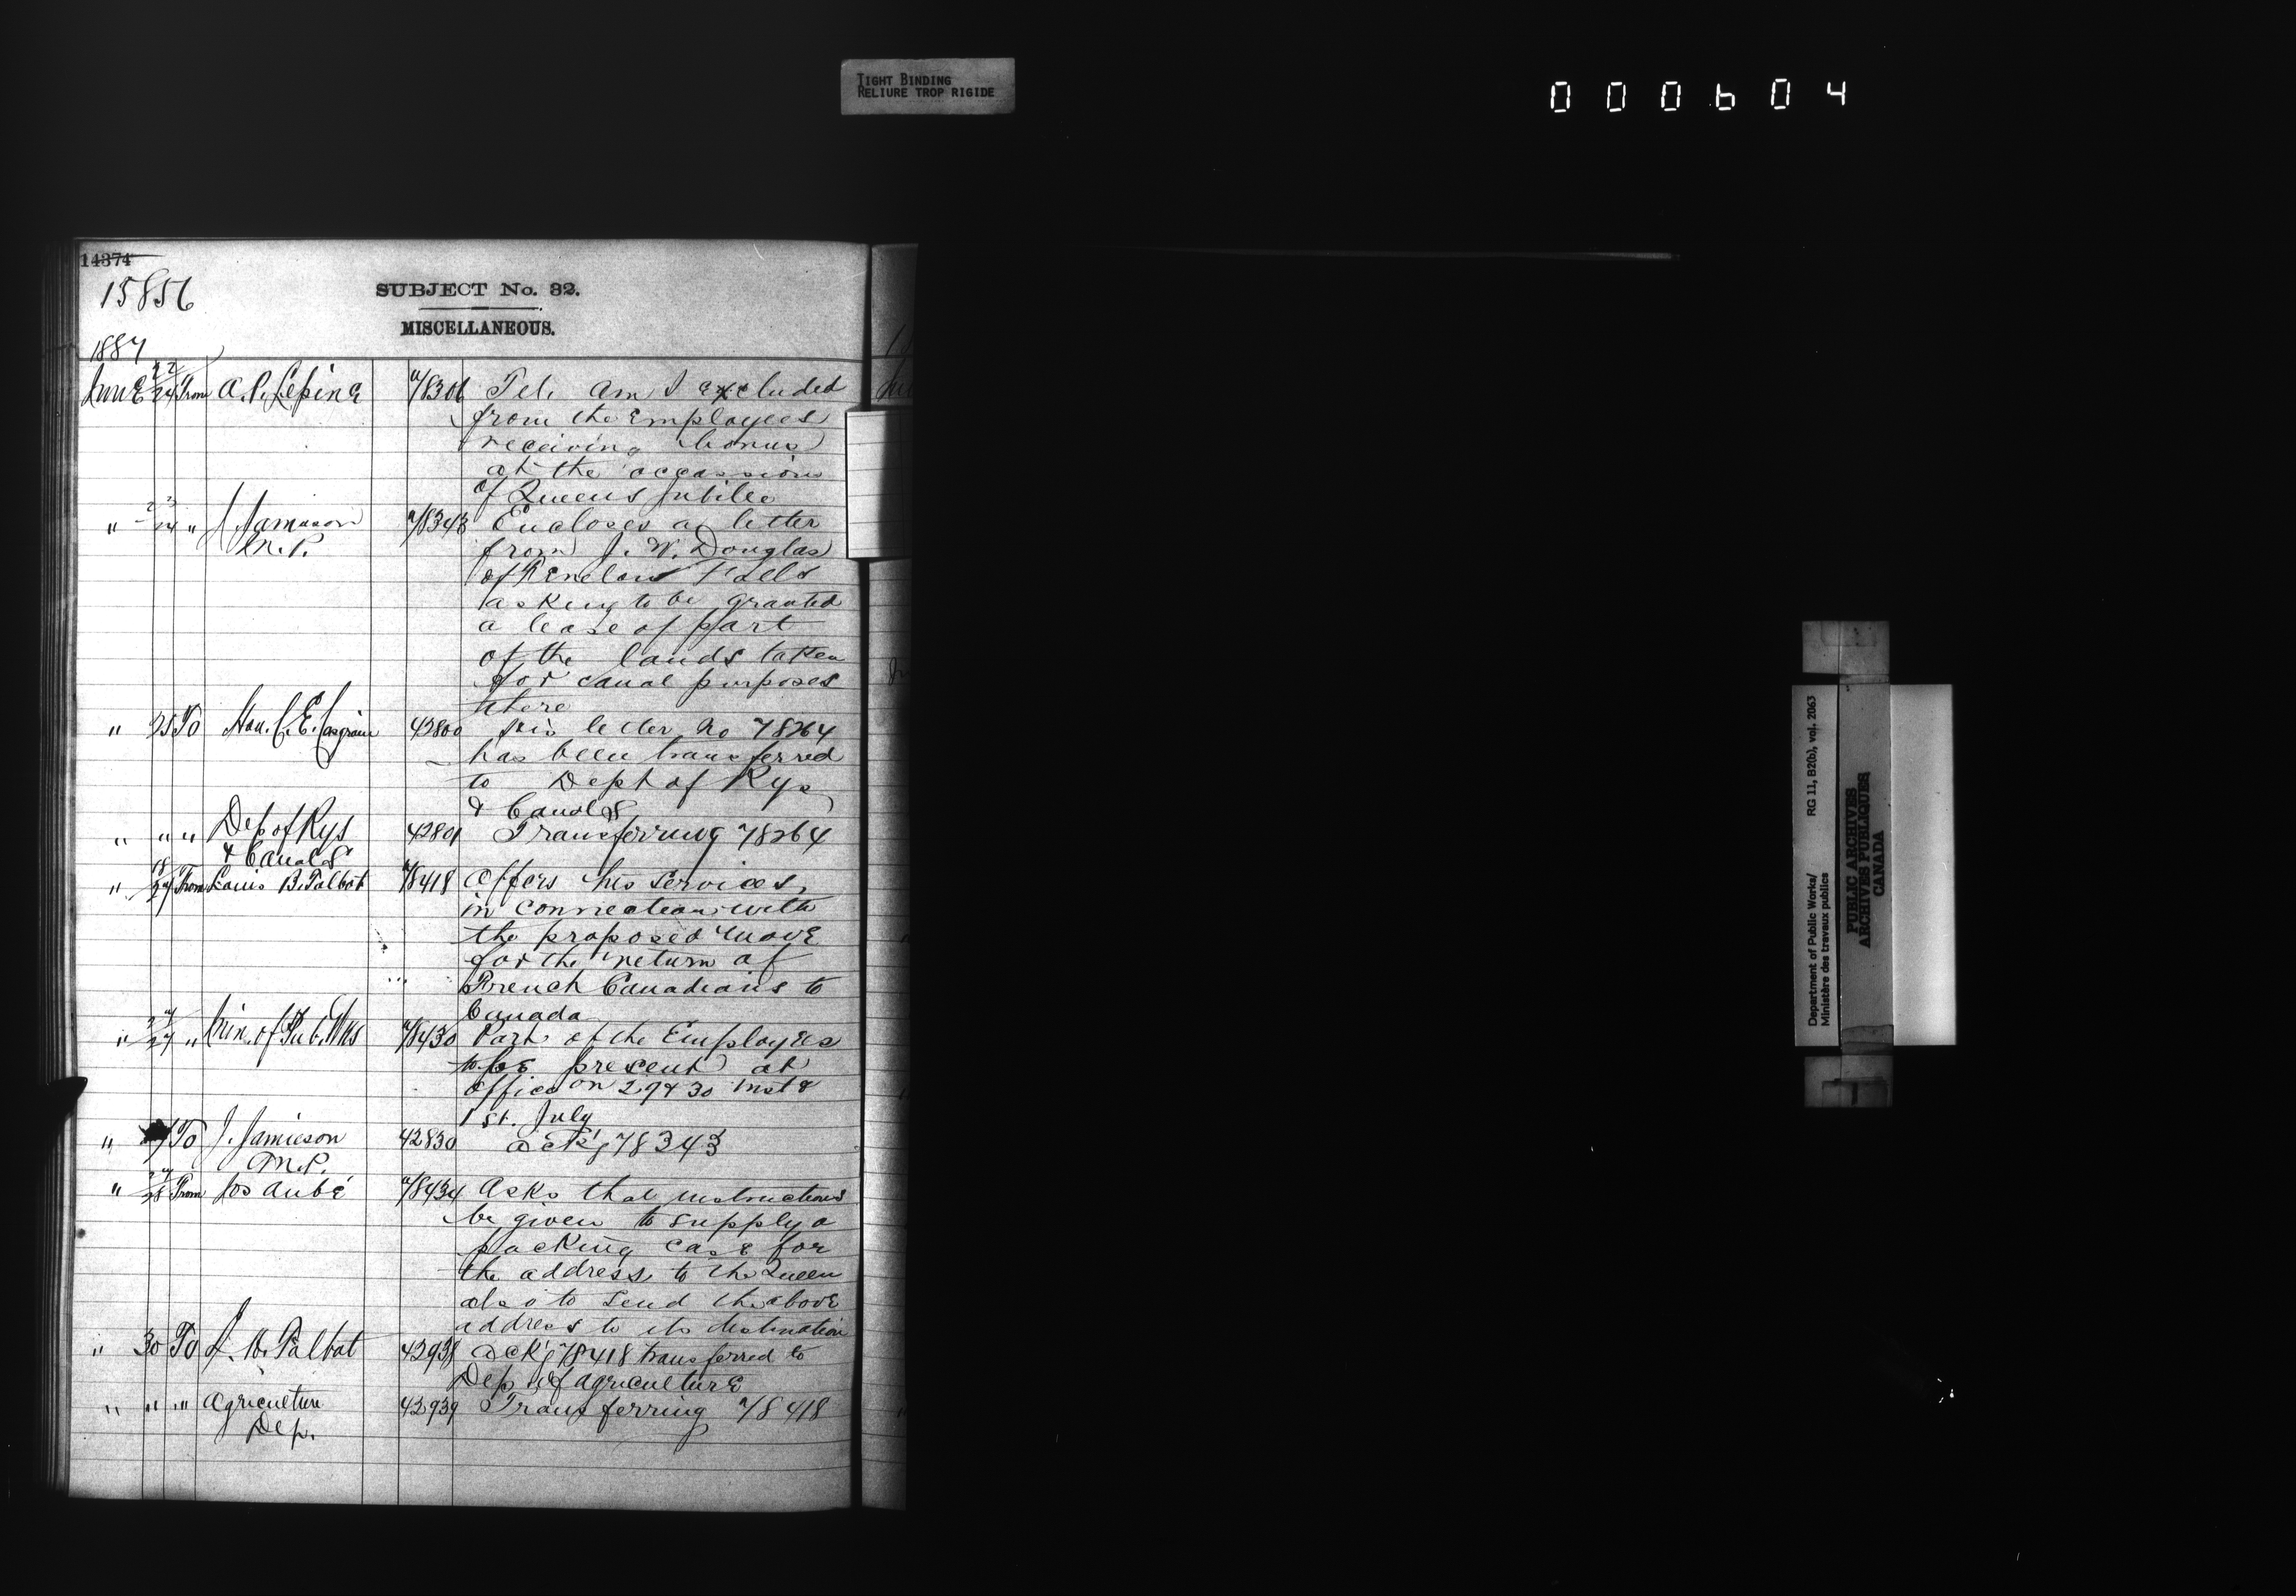 TIGHT BINDING
RELIURE TROP RIGIDE
000604
14374
15856
SUBJECT No. 32.
MISCELLANEOUS.
1887
June 22/24 From A. P. Lepine 78306 Tel. Am I excluded
from the Employees
receiving bonus
at the occassion
of Queens Jubilee
" 23/24 " J. Jamieson 78343 Encloses a letter
M.P. from J. W. Douglas
of Fenelon Falls
asking to be granted
a lease of part
of the lands taken
for canal purposes
there
" 25 To Hon. C. E. Casgrain 42800 his letter No 78264
has been transferred
to Dept of Rys
& Canals
" " " Dep of Rys 42801 Transferring 78264
& Canals
" 18/27 From Louis B. Talbot 78418 Offers his services,
in connection with
the proposed move
for the return of
French Canadians to
Canada
" 27/27 " Min. of Pub. Wks 78430 Part of the Employees
to be present at
office on 29 & 30 Inst &
1st. July
" 27 To J. Jamieson 42830 ack'g 78343
M.P.
" 27/28 From Jos Aubé 78434 Asks that instructions
be given to supply a
packing case for
the address to the Queen
also to send the above
address to its destination
" 30 To L. B. Talbot 42938 ack'g 78418 transferred to
Dep of Agriculture
" " " Agriculture 42939 Transferring 78418
Dep.
Department of Public Works/
Ministère des travaux publics
RG 11, B2(b), vol. 2063
PUBLIC ARCHIVES
ARCHIVES PUBLIQUES
CANADA